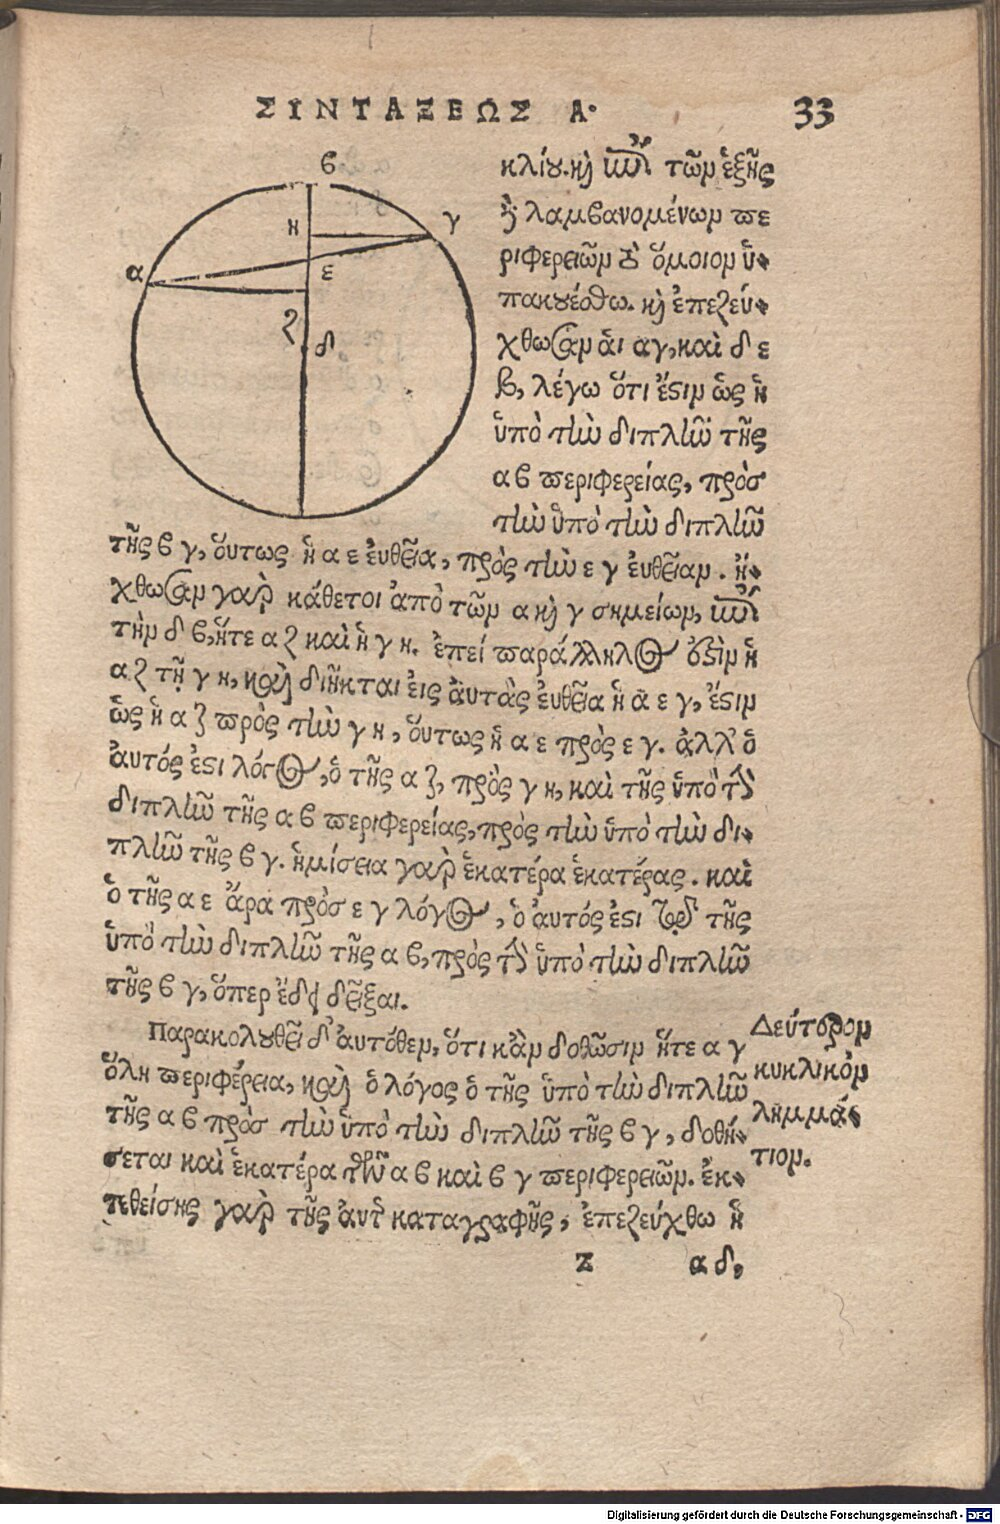 ΣΙΝΤΑΞΕΩΣ Α. 33
β
η
γ
α
ε
ζ
δ
κλίου. καὶ ἐπὶ τῶν ἑξῆς
δὲ λαμβανομένων πε
ριφερειῶν τὸ ὅμοιον ὑ-
πακουέσθω. καὶ ἐπεζεύ-
χθωσαν ἁι αγ, καὶ δ ε
β, λέγω ὅτι ἔστιν ὡς ἡ
ὑπὸ τὴν διπλῆν τῆς
α β περιφερείας, πρὸσ
τὴν ὑπὸ τὴν διπλῆν
τῆς β γ, ὅυτως ἡ α ε ἐυθεῖα, πρὸς τὴν ε γ ἐυθεῖαν. ἤ-
χθωσαν γὰρ κάθετοι ἀπὸ τῶν α καὶ γ σημείων, ἐπὶ
τὴν δ β, ἥτε α ζ καὶ ἡ γ η. ἐπεί παράλληλος ἐστὶν ἡ
α ζ τῇ γ η, καὶ διῆκται ἐις ἀυτὰς ἐυθεῖα ἡ α ε γ, ἔστιν
ὡς ἡ α ζ πρὸς τὴν γ η, ὅυτως ἡ α ε πρὸς ε γ. ἀλλ' ὁ
ἀυτός ἐστι λόγος, ὁ τῆς α ζ, πρὸς γ η, καὶ τῆς ὑπὸ τὴν
διπλῆν τῆς α β περιφερείας, πρὸς τὴν ὑπὸ τὴν δι-
πλῆν τῆς β γ. ἡμίσεια γὰρ ἑκατέρα ἑκατέρας. καὶ
ὁ τῆς α ε ἄρα πρὸσ ε γ λόγος, ὁ ἀυτός ἐστι τῷ τῆς
ὑπὸ τὴν διπλῆν τῆς α β, πρὸς τὴν ὑπὸ τὴν διπλῆν
τῆς β γ, ὅπερ ἔδει δεῖξαι.
Παρακολουθεῖ δ' ἀυτόθεν, ὅτι κἂν δοθῶσιν ἥτε α γ
ὅλη περιφέρεια, καὶ ὁ λόγος ὁ τῆς ὑπὸ τὴν διπλῆν
τῆς α β πρὸσ τὴν ὑπὸ τὴν διπλῆν τῆς β γ, δοθή-
σεται καὶ ἑκατέρα τῶν α β καὶ β γ περιφερειῶν. ἐκ-
τεθείσης γὰρ τῆς ἀυτῆς καταγραφῆς, ἐπεζεύχθω ἡ
Δεύτερον
κυκλικὸν
λημμά-
τιον.
Z α δ,
Digitalisierung gefördert durch die Deutsche Forschungsgemeinschaft - DFG